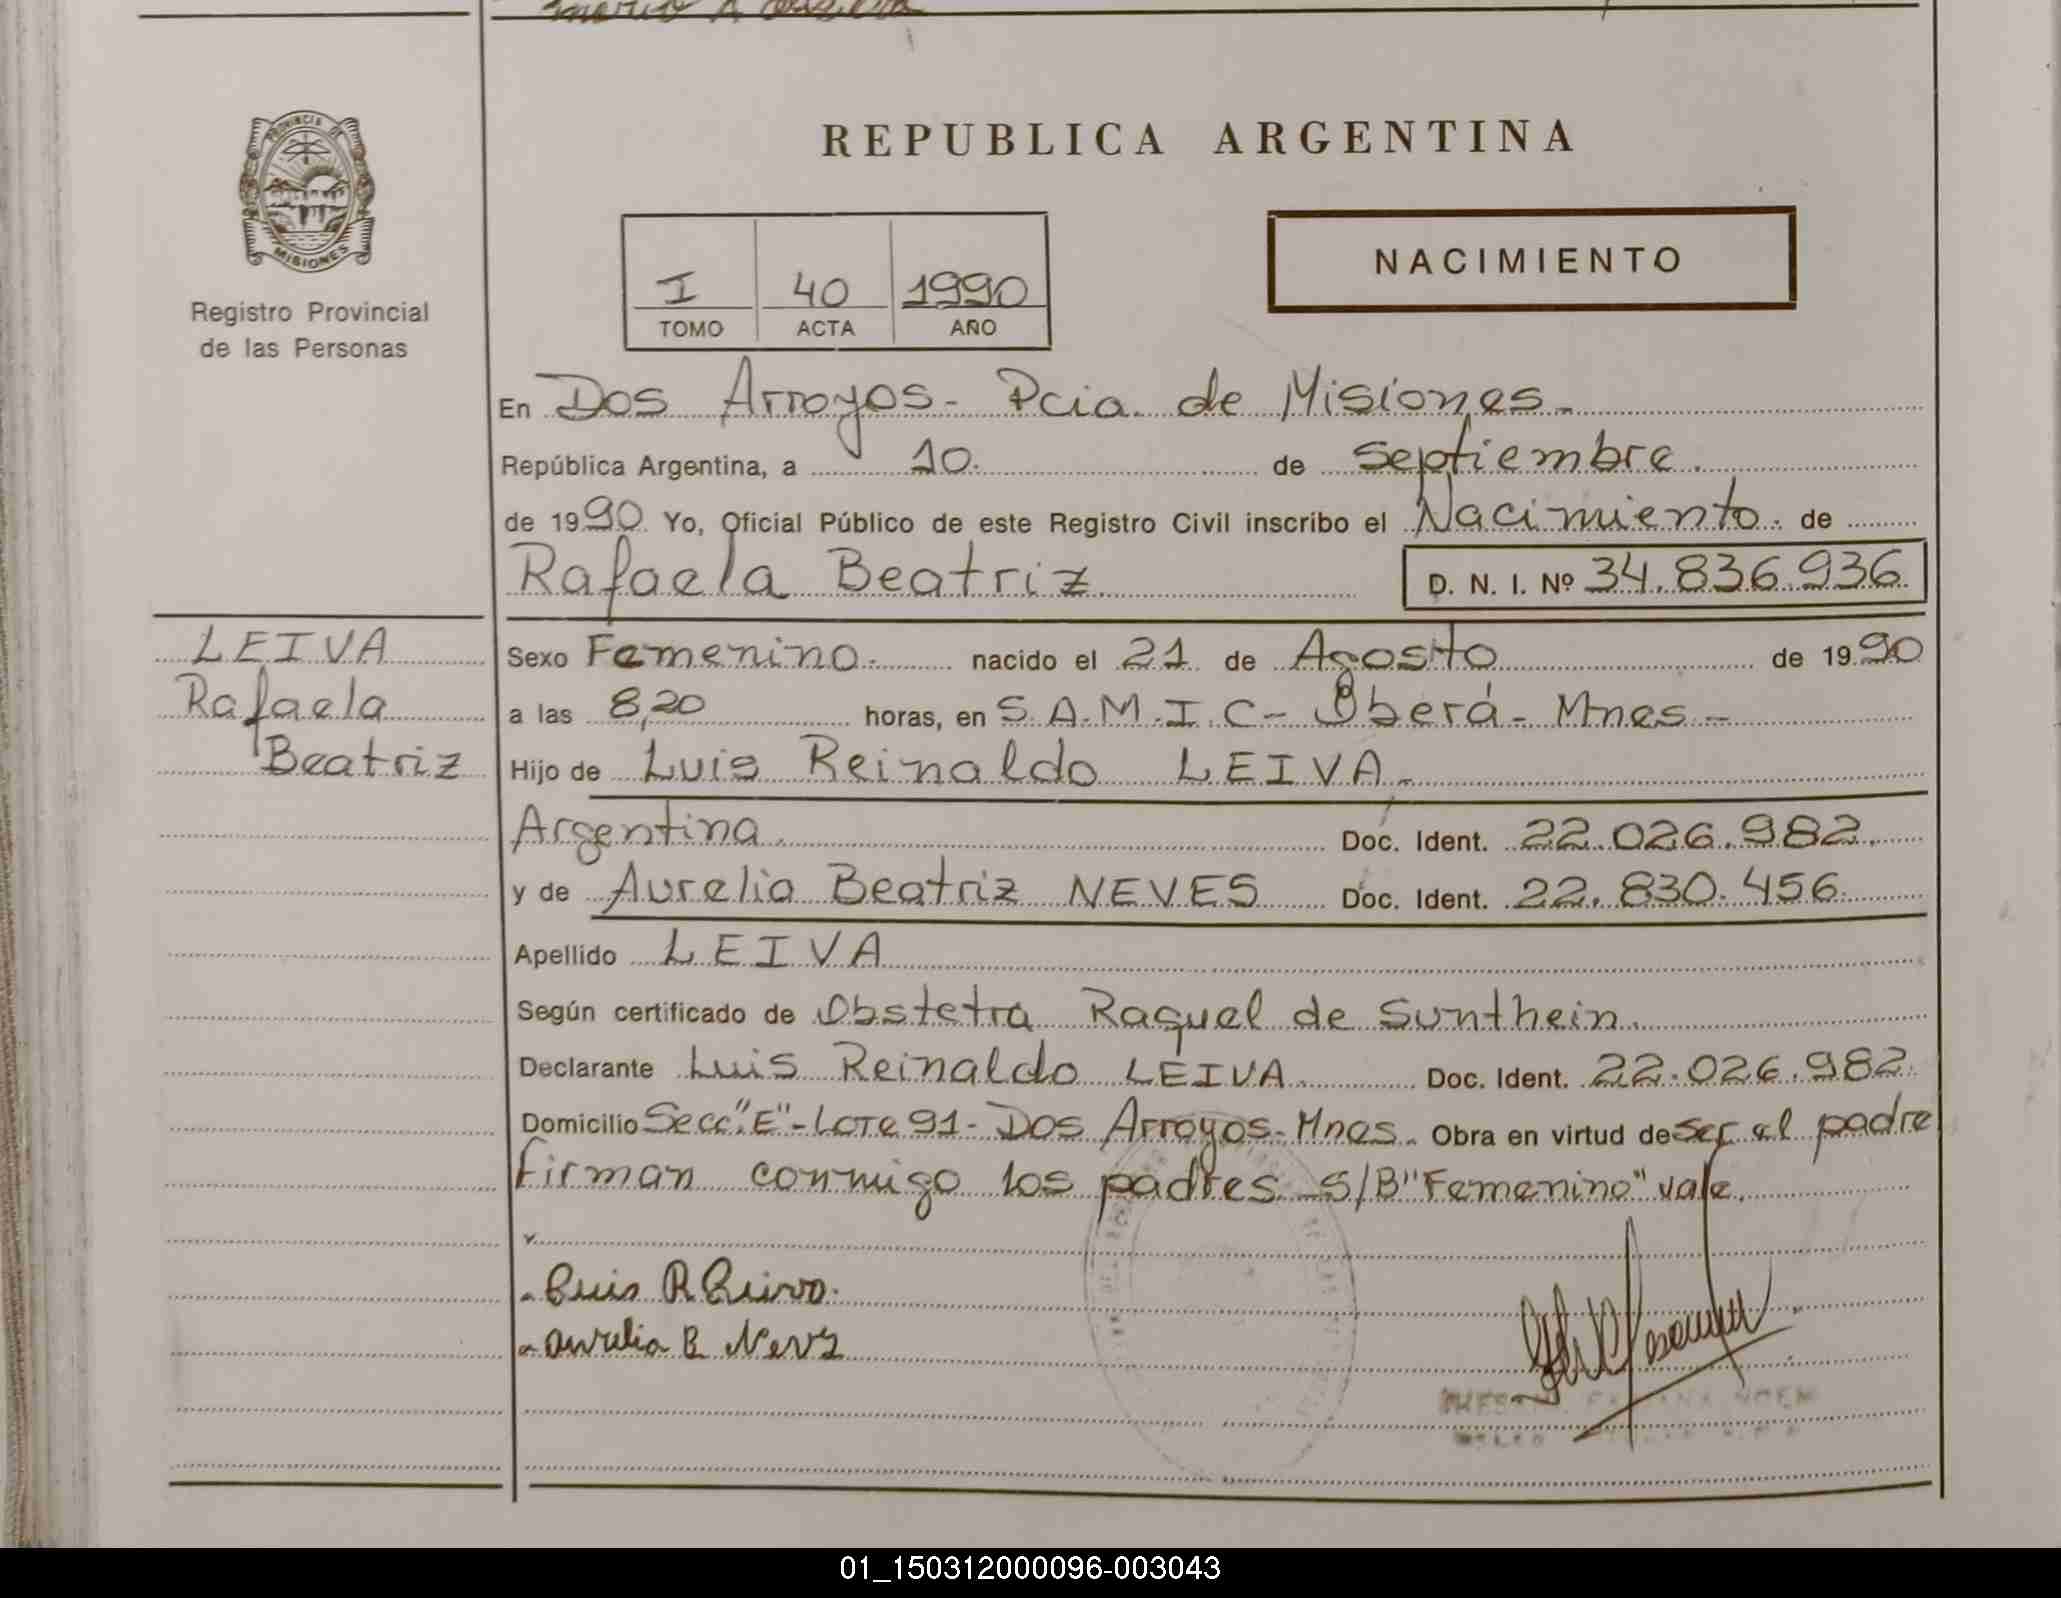 PROVINCIA DE
MISIONES
Registro Provincial
de las Personas
REPUBLICA ARGENTINA
I 40 1990
TOMO ACTA AÑO
NACIMIENTO
En Dos Arroyos - Pcia. de Misiones.-
República Argentina, a 10. de Septiembre.
de 1990. Yo, Oficial Público de este Registro Civil inscribo el Nacimiento. de
Rafaela Beatriz D. N. I. Nº 34.836.936
LEIVA
Rafaela
Beatriz
Sexo Femenino. nacido el 21 de Agosto de 1990
a las 8,20 horas, en S.A.M.I.C - Oberá - Mnes -
Hijo de Luis Reinaldo LEIVA.
Argentina. Doc. Ident. 22.026.982.
y de Aurelia Beatriz NEVES Doc. Ident. 22.830.456.
Apellido LEIVA
Según certificado de Obstetra Raquel de Sunthein.
Declarante Luis Reinaldo LEIVA Doc. Ident. 22.026.982.
Domicilio Secc "E" - Lote 91 - Dos Arroyos - Mnes. Obra en virtud de ser el padre
Firman conmigo los padres S/B "Femenino" vale.
Luis R Leiva.
Aurelia B Neves
01_150312000096-003043